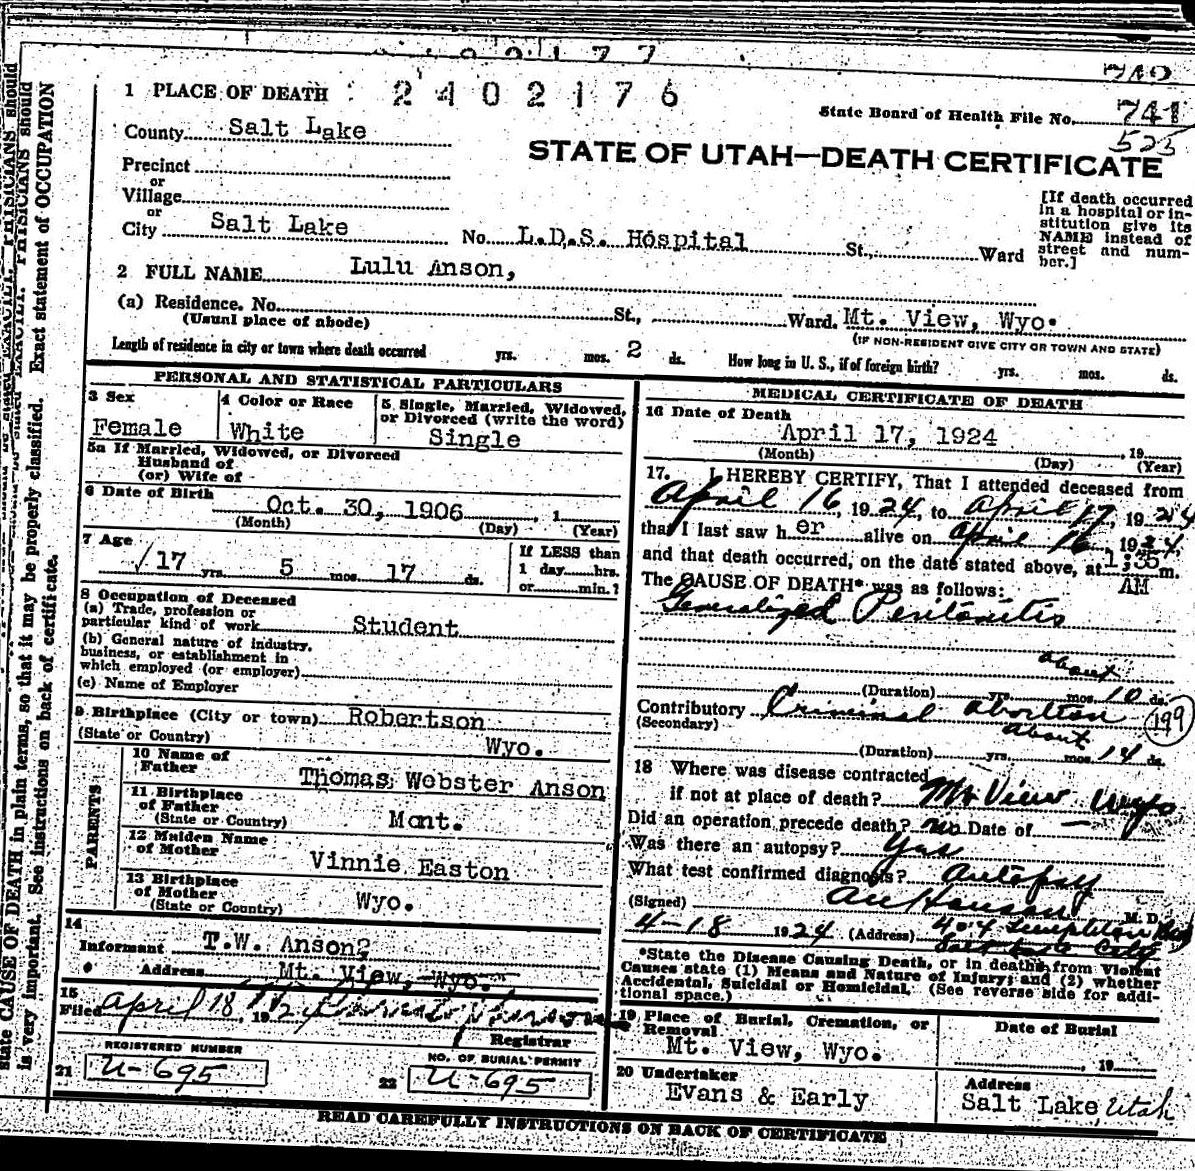 1 PLACE OF DEATH 2402176
State Board of Health File No. 741
523
County Salt Lake
STATE OF UTAH—DEATH CERTIFICATE
Precinct
or
Village
or
City Salt Lake No. L.D.S. Hospital St., Ward
[If death occurred in a hospital or institution give its NAME instead of street and number.]
2 FULL NAME Lulu Anson,
(a) Residence. No. St., Ward. Mt. View, Wyo.
(Usual place of abode) (IF NON-RESIDENT GIVE CITY OR TOWN AND STATE)
Length of residence in city or town where death occurred yrs. mos. 2 ds. How long in U. S., if of foreign birth? yrs. mos. ds.
PERSONAL AND STATISTICAL PARTICULARS
3 Sex
Female
4 Color or Race
White
5 Single, Married, Widowed,
or Divorced (write the word)
Single
5a If Married, Widowed, or Divorced
Husband of
(or) Wife of
6 Date of Birth Oct. 30, 1906, 1
(Month) (Day) (Year)
7 Age
17 yrs. 5 mos. 17 ds.
If LESS than
1 day hrs.
or min.?
8 Occupation of Deceased
(a) Trade, profession or
particular kind of work Student
(b) General nature of industry,
business, or establishment in
which employed (or employer)
(c) Name of Employer
9 Birthplace (City or town) Robertson
(State or Country) Wyo.
PARENTS
10 Name of
Father Thomas Webster Anson
11 Birthplace
of Father
(State or Country) Mont.
12 Maiden Name
of Mother Vinnie Easton
13 Birthplace
of Mother
(State or Country) Wyo.
14
Informant T.W. Anson
Address Mt. View, Wyo.
15
Filed April 18, 1924
Registrar
REGISTERED NUMBER
21 U-695
NO. OF BURIAL PERMIT
22 U-695
MEDICAL CERTIFICATE OF DEATH
16 Date of Death
April 17, 1924, 19
(Month) (Day) (Year)
17. I HEREBY CERTIFY, That I attended deceased from
April 16, 1924, to April 17, 1924
that I last saw her alive on April 16, 1924,
and that death occurred, on the date stated above, at 1:35 m.
AM
The CAUSE OF DEATH* was as follows:
Generalized Peritonitis
about
(Duration) yrs. mos. 10 ds.
Contributory Criminal abortion 199
(Secondary)
about
(Duration) yrs. mos. 14 ds.
18 Where was disease contracted
if not at place of death? Mt View Wyo
Did an operation precede death? no Date of —
Was there an autopsy? Yes
What test confirmed diagnosis? Autopsy
(Signed) M. D.
4-18 1924 (Address) 404 Templeton Bldg
Salt Lake City
*State the Disease Causing Death, or in deaths from Violent
Causes state (1) Means and Nature of Injury; and (2) whether
Accidental, Suicidal or Homicidal. (See reverse side for addi-
tional space.)
19 Place of Burial, Cremation, or
Removal
Mt. View, Wyo.
Date of Burial
, 19
20 Undertaker
Evans & Early
Address
Salt Lake Utah
READ CAREFULLY INSTRUCTIONS ON BACK OF CERTIFICATE
state CAUSE OF DEATH in plain terms, so that it may be properly classified. Exact statement of OCCUPATION
is very important. See instructions on back of certificate.